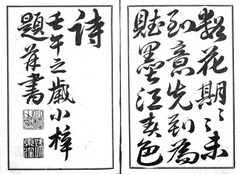 數花期〻未
到意先到為
賦墨江春色
詩
壬午之歳小梓
題并書